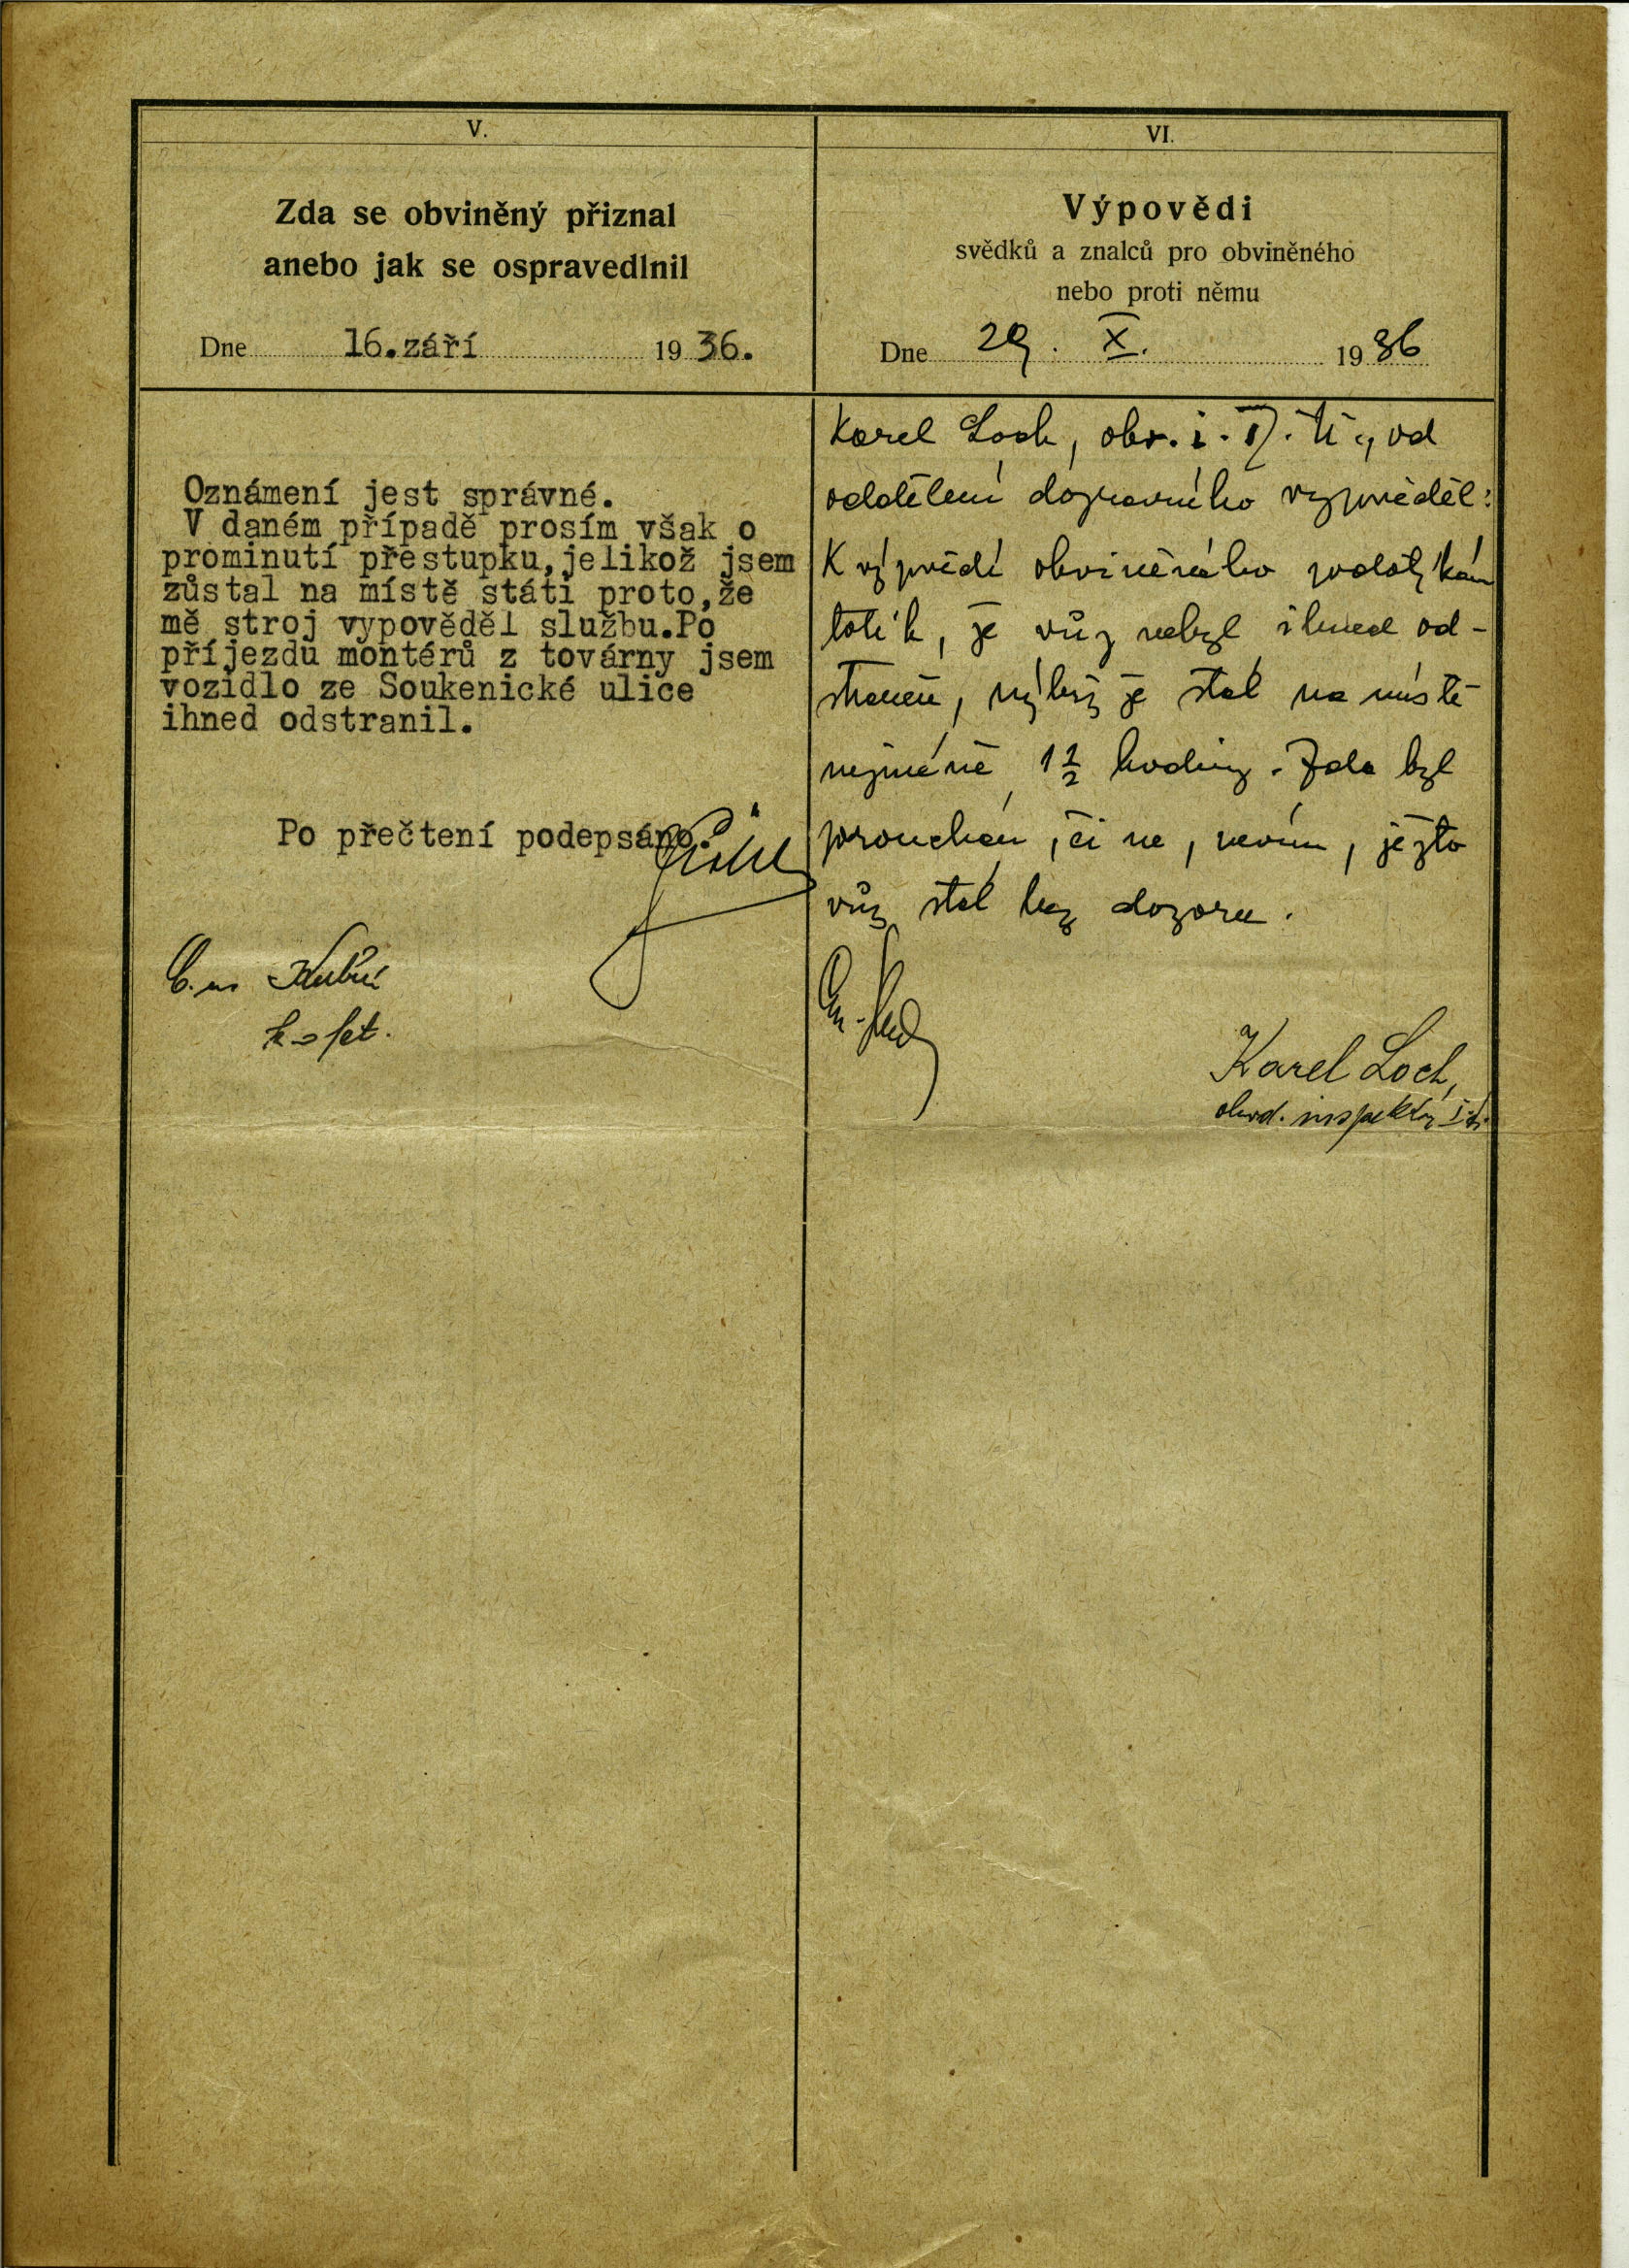 V.
Zda se obviněný přiznal
anebo jak se ospravedlnil
Dne 16.září 19 36.
Oznámení jest správné.
V daném případě prosím však o
prominutí přestupku,jelikož jsem
zůstal na místě státi proto,že
mě stroj vypověděl službu.Po
příjezdu montérů z továrny jsem
vozidlo ze Soukenické ulice
ihned odstranil.
Po přečtení podepsáno:
VI.
Výpovědi
svědků a znalců pro obviněného
nebo proti němu
Dne 29. X. 19 36
Karel Loch, obv. i. tř., od
oddělení dopravního vypověděl:
K výpovědi obviněného podotýkám
tolik, že vůz nebyl ihned od-
straněn, nýbrž že stál na místě
nejméně 1 1/2 hodiny. Zda byl
porouchán, či ne, nevím, ježto
vůz stál bez dozoru.
Karel Loch,
obvod. inspektor